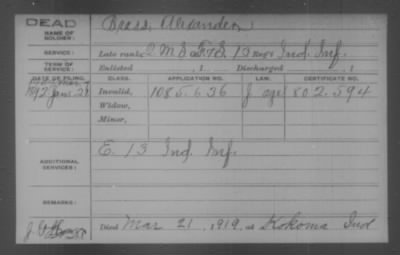 DEAD
NAME OF SOLDIER: Brass, Alexander
SERVICE: Late rank, 2 M S & F & S 13 Reg't Ind. Inf.
TERM OF SERVICE: Enlisted , 1 Discharged , 1
DATE OF FILING. CLASS. APPLICATION NO. LAW. CERTIFICATE NO.
1892 Jan. Invalid, 1085.636 J 802.594
Widow,
Minor,
ADDITIONAL SERVICES: E. 13 Ind. Inf.
REMARKS:
Died Mar 21, 1919, at Kokomo Ind